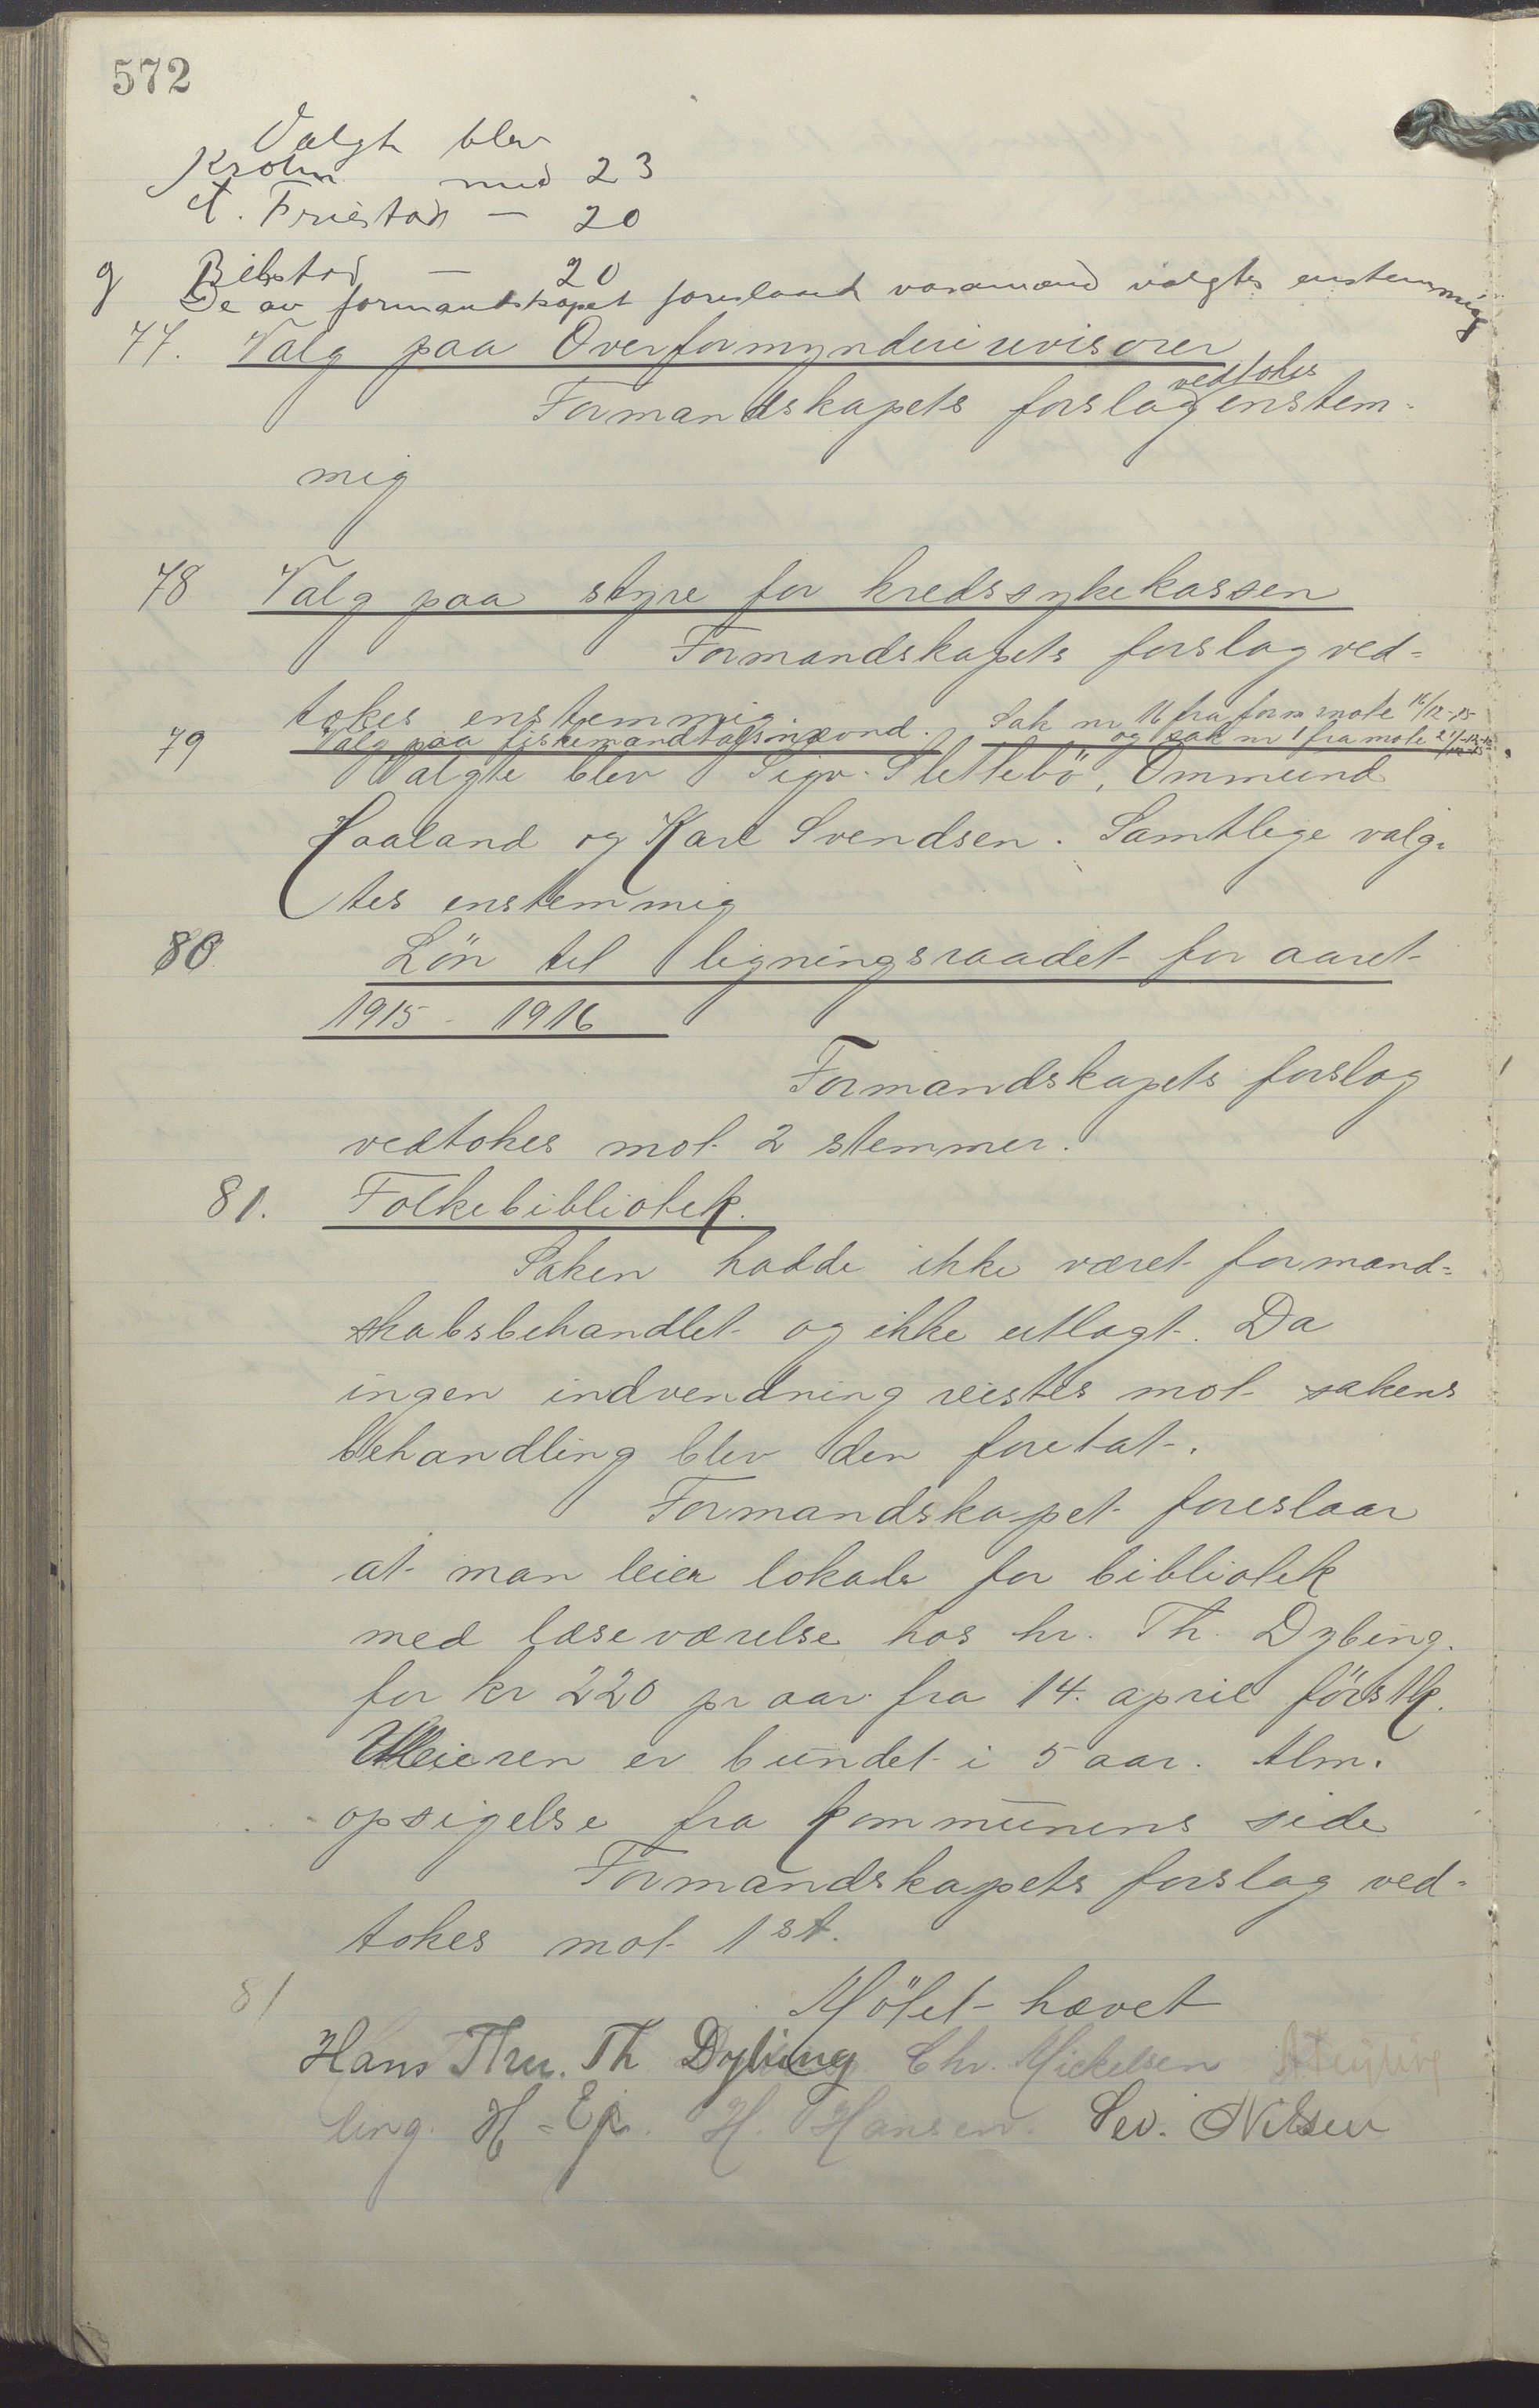 572
Valgt blev
Krohn med 23
A. Friestad — 20
g Bilstad — 20
De av formandskapet foreslaaed varamænd valgtes enstemmig
77. Valg paa Overformynderirevisorer
vedtokes
Formandskapets forslag enstem-
mig
78 Valg paa styre for kredssykekassen
Formandskapets forslag ved-
tokes enstemmig.
79 Valg paa fiskemandtalsnævnd. Sak nr 16 fra formmøte 16/12-15
og sak nr 1 fra møte
Valgte blev Sigv. Slettebö, Ommund
Haaland og Karl Svendsen. Samtlege valg-
tes enstemmig
80 Lön til ligningsraadet for aaret
1915 - 1916
Formandskapets forslag
vedtokes mot 2 stemmer.
81. Folkebibliotek.
Saken hadde ikke været formand-
skabsbehandlet og ikke utlagt. Da
ingen indvendning reistes mot sakens
behandling blev den foretat.
Formandskapet foreslaar
at man leier lokale for bibliotek
med læseværelse hos hr. Th. Dybing.
for kr 220 pr aar fra 14. april förstk.
Utleieren er bundet i 5 aar. Alm.
opsigelse fra kommunens side
Formandskapets forslag ved-
tokes mot 1 st.
81
Mötet hævet
Hans Thu. Th Dybing Chr. Mickelsen
H. Hansen. Sev. Nilsen